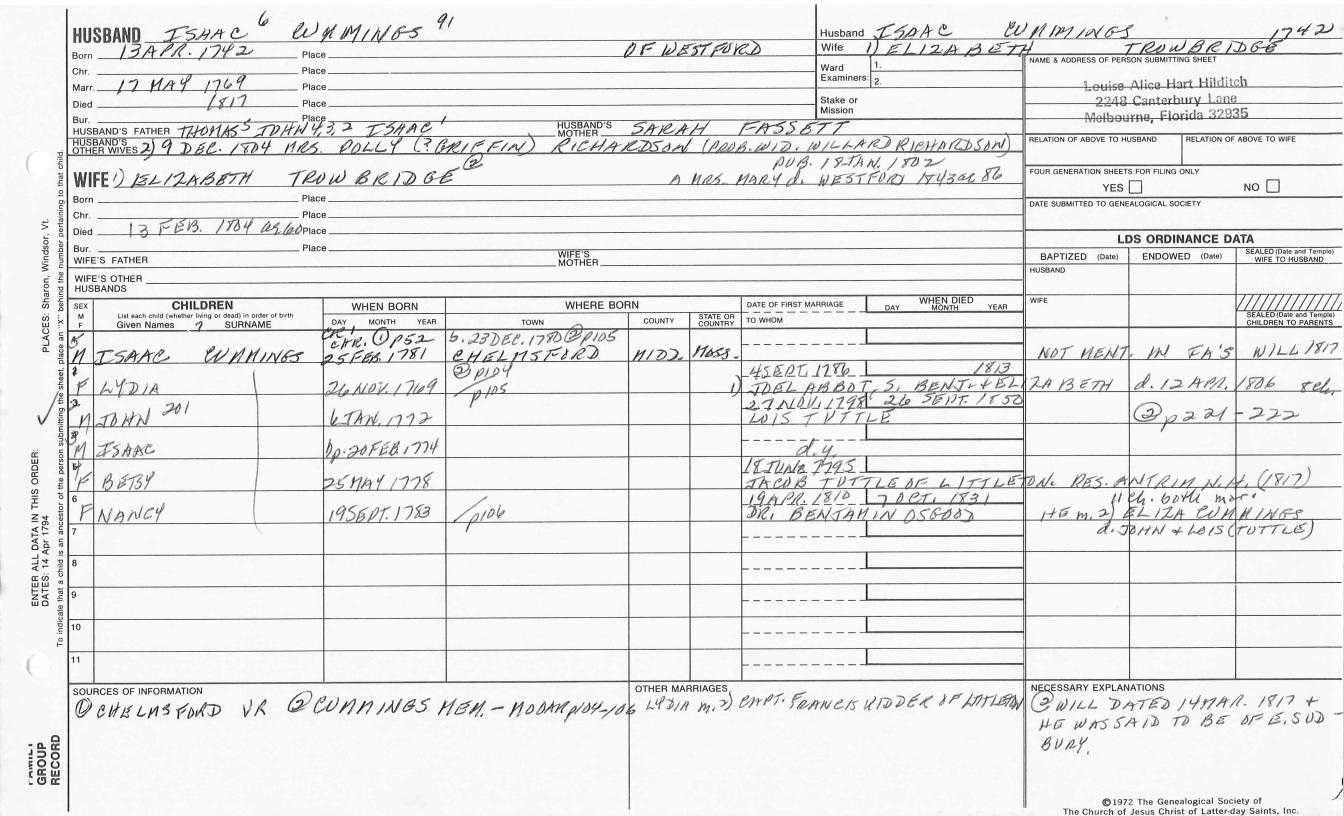 HUSBAND ISAAC 6 CUMMINGS 91
Born 13 APR. 1742 Place OF WESTFORD
Chr. Place
Marr. 17 MAY 1769 Place
Died 1817 Place
Bur. Place
HUSBAND'S FATHER THOMAS 5 JOHN 4,3,2 ISAAC 1 HUSBAND'S MOTHER SARAH FASSETT
HUSBAND'S OTHER WIVES 2) 9 DEC. 1804 MRS. POLLY (? GRIFFIN) RICHARDSON (PROB. WID. WILLARD RICHARDSON)
PUB. 18 JAN. 1802
WIFE 1) ELIZABETH TROWBRIDGE ② A MRS. MARY d. WESTFORD 1843 ae 86
Born Place
Chr. Place
Died 13 FEB. 1804 ae 60 Place
Bur. Place
WIFE'S FATHER WIFE'S MOTHER
WIFE'S OTHER HUSBANDS
Husband ISAAC CUMMINGS 1742
Wife 1) ELIZABETH TROWBRIDGE
Ward Examiners: 1. 2.
Stake or Mission
NAME & ADDRESS OF PERSON SUBMITTING SHEET
Louise Alice Hart Hilditch
2248 Canterbury Lane
Melbourne, Florida 32935
RELATION OF ABOVE TO HUSBAND RELATION OF ABOVE TO WIFE
FOUR GENERATION SHEETS FOR FILING ONLY
YES NO
DATE SUBMITTED TO GENEALOGICAL SOCIETY
LDS ORDINANCE DATA
BAPTIZED (Date) ENDOWED (Date) SEALED (Date and Temple) WIFE TO HUSBAND
HUSBAND
WIFE
SEALED (Date and Temple) CHILDREN TO PARENTS
SEX M F CHILDREN WHEN BORN WHERE BORN DATE OF FIRST MARRIAGE WHEN DIED
List each child (whether living or dead) in order of birth DAY MONTH YEAR
Given Names ? SURNAME DAY MONTH YEAR TOWN COUNTY STATE OR COUNTRY TO WHOM
CHR. ① p52 b. 23 DEC. 1780 ② p105
5 M ISAAC CUMMINGS 25 FEB. 1781 CHELMSFORD MIDD. MASS. NOT MENT. IN FA'S WILL 1817
② p104 4 SEPT. 1786 1813
1 F LYDIA 26 NOV. 1769 /p105 1) JOEL ABBOT, S. BENJ. & ELIZABETH d. 12 APR. 1806 8 ch.
27 NOV. 1798 26 SEPT. 1850
2 M JOHN 201 6 JAN. 1772 LOIS TUTTLE ② p221-222
3 M ISAAC bp. 20 FEB. 1774 d.y.
18 JUNE 1795
4 F BETSY 25 MAY 1778 JACOB TUTTLE OF LITTLETON. RES. ANTRIM N.H. (1817)
19 APR. 1810 7 OCT. 1831 11 ch. both mar.
6 F NANCY 19 SEPT. 1783 /p106 DR. BENJAMIN OSGOOD HE m. 2) ELIZA CUMMINGS
7 d. JOHN & LOIS (TUTTLE)
8
9
10
11
SOURCES OF INFORMATION
① CHELMSFORD VR ② CUMMINGS MEM. - MOOAR p104-106
OTHER MARRIAGES
LYDIA m. 2) CAPT. FRANCIS KIDDER OF LITTLETON
NECESSARY EXPLANATIONS
② WILL DATED 14 MAR. 1817 +
HE WAS SAID TO BE OF E. SUD-
BURY.
©1972 The Genealogical Society of
The Church of Jesus Christ of Latter-day Saints, Inc.
ENTER ALL DATA IN THIS ORDER:
DATES: 14 Apr 1794 PLACES: Sharon, Windsor, Vt.
To indicate that a child is an ancestor of the person submitting the sheet, place an "X" behind the number pertaining to that child.
FAMILY
GROUP
RECORD